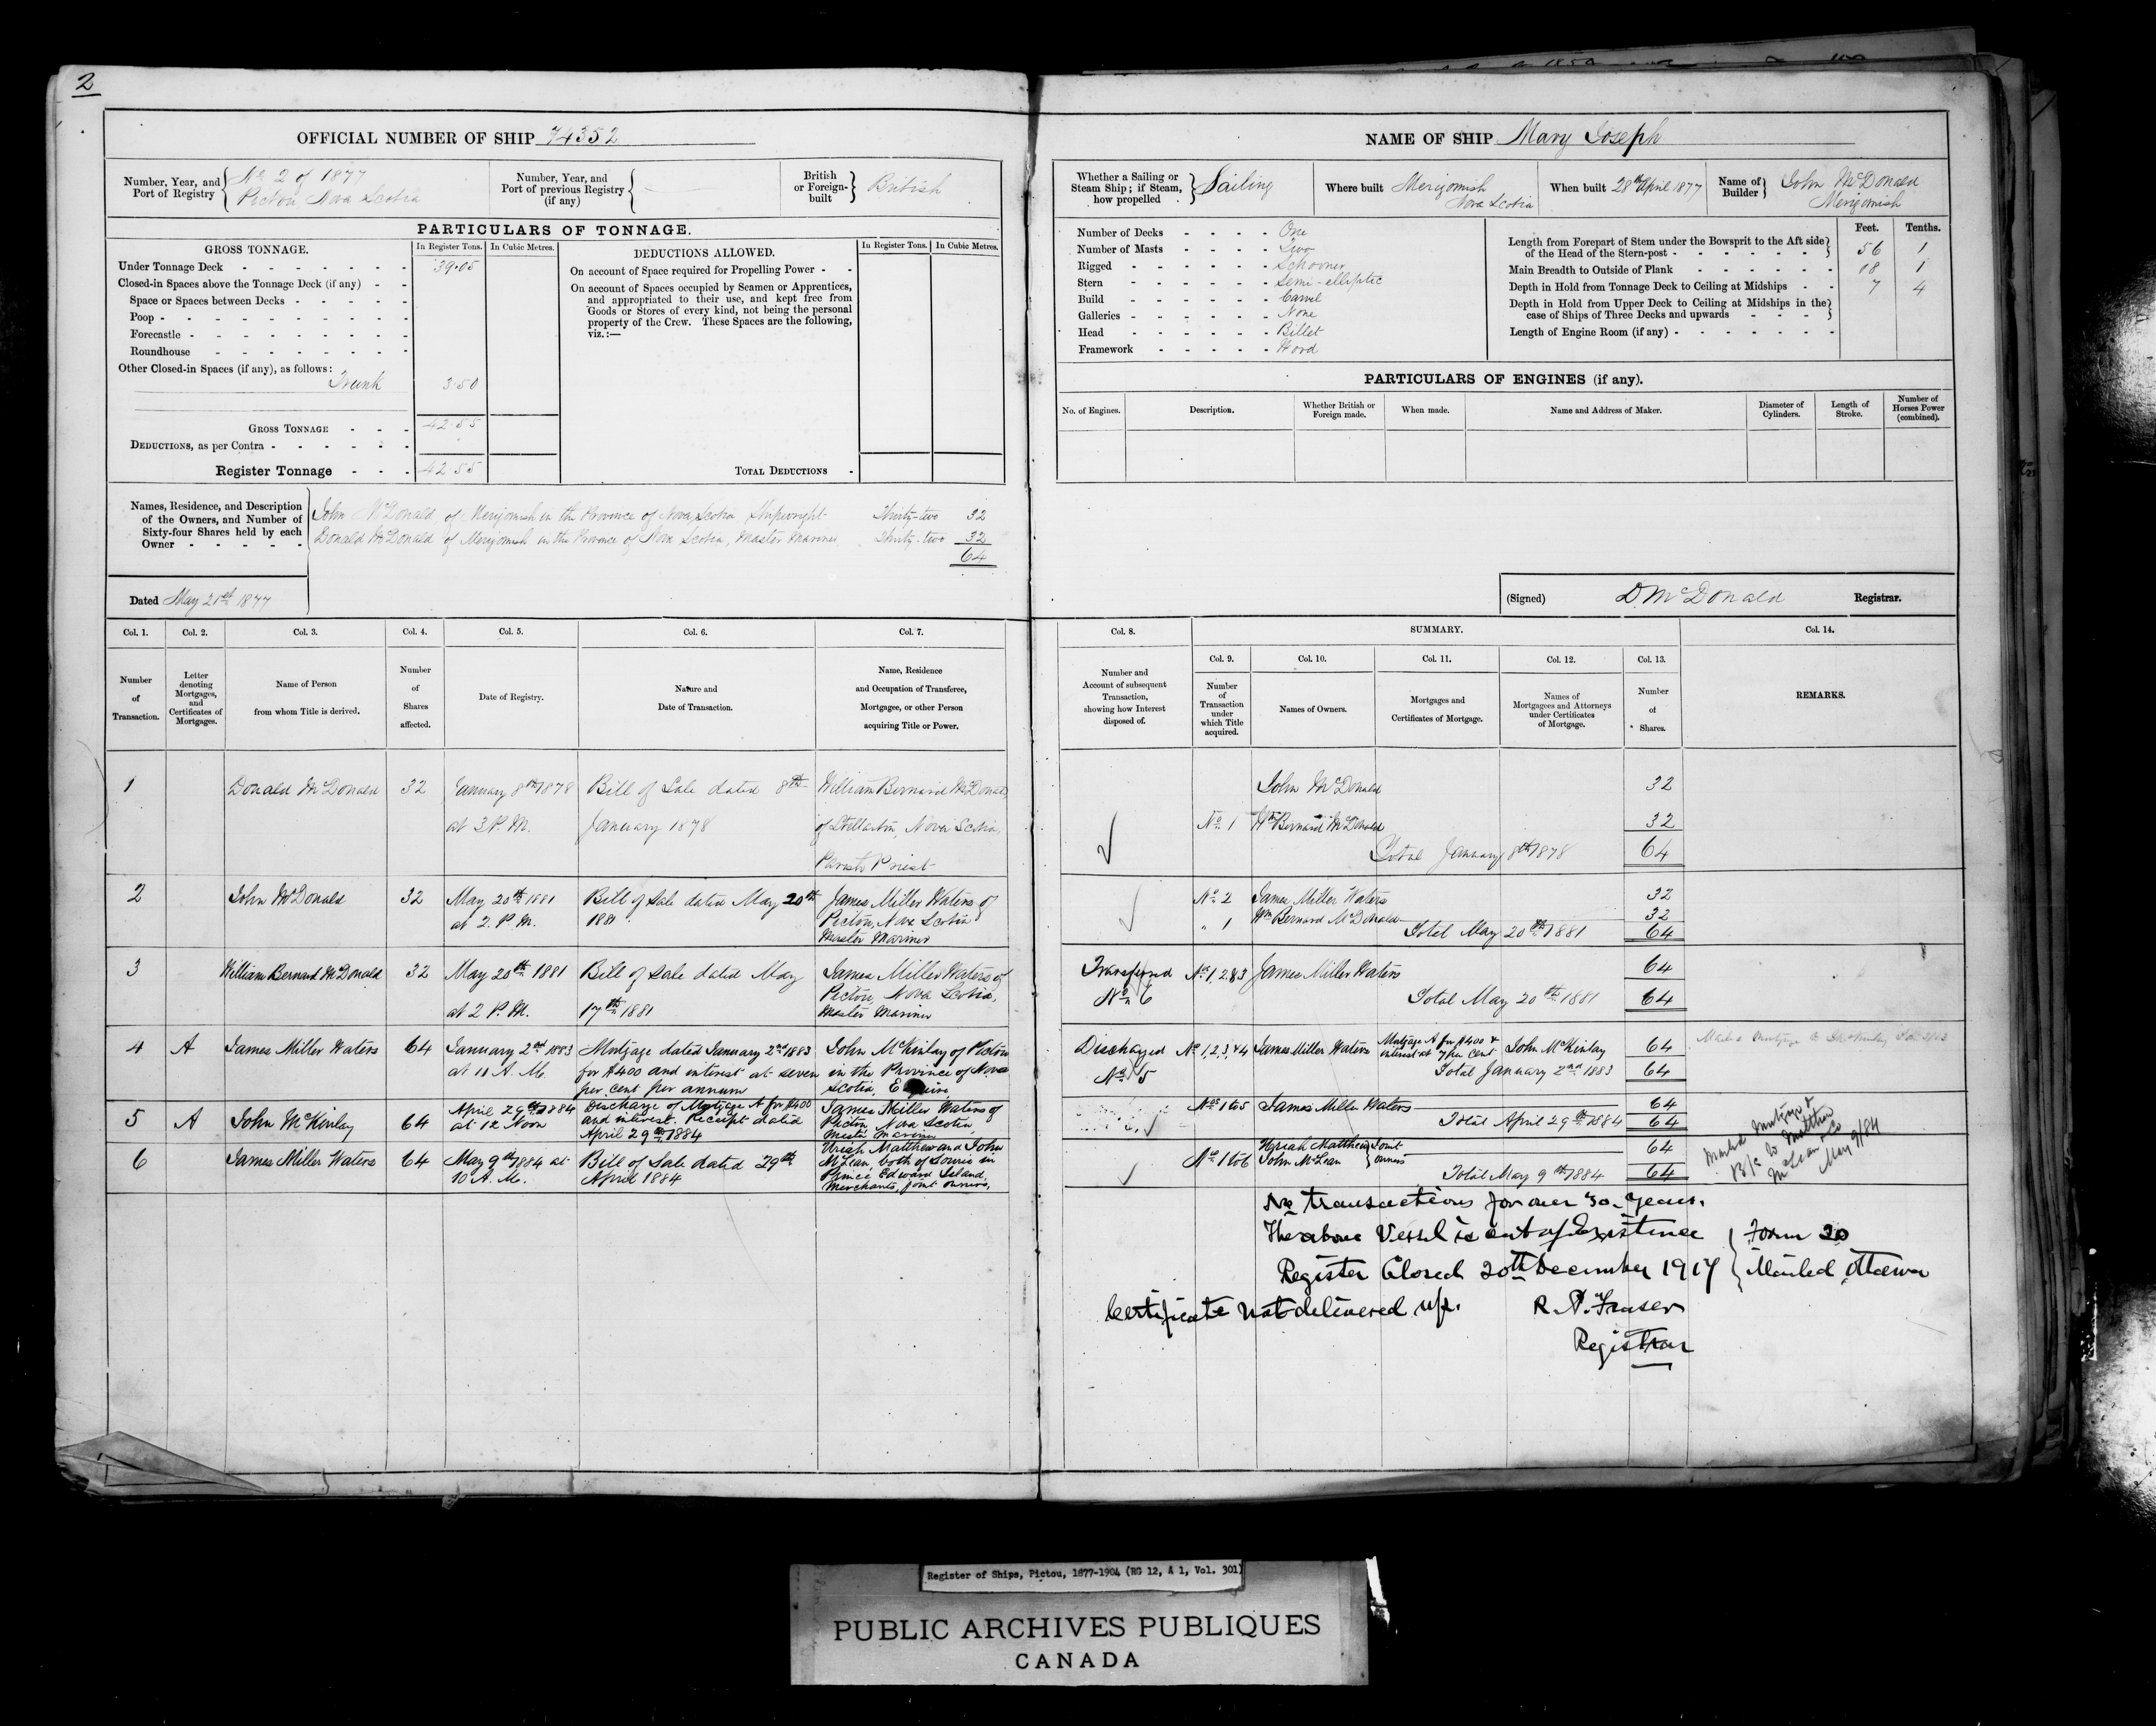 2
OFFICIAL NUMBER OF SHIP 74352
Number, Year, and Port of Registry
No 2 of 1877
Pictou Nova Scotia
Number, Year, and Port of previous Registry (if any)
British or Foreign-built
British
PARTICULARS OF TONNAGE.
GROSS TONNAGE.
In Register Tons.
In Cubic Metres.
Under Tonnage Deck 39.05
Closed-in Spaces above the Tonnage Deck (if any)
Space or Spaces between Decks
Poop
Forecastle
Roundhouse
Other Closed-in Spaces (if any), as follows:
Trunk 3.50
GROSS TONNAGE 42.55
DEDUCTIONS, as per Contra
Register Tonnage 42.55
DEDUCTIONS ALLOWED.
In Register Tons.
In Cubic Metres.
On account of Space required for Propelling Power
On account of Spaces occupied by Seamen or Apprentices,
and appropriated to their use, and kept free from
Goods or Stores of every kind, not being the personal
property of the Crew. These Spaces are the following,
viz.:—
TOTAL DEDUCTIONS
Names, Residence, and Description
of the Owners, and Number of
Sixty-four Shares held by each
Owner
John McDonald of Merigomish in the Province of Nova Scotia Shipwright Thirty-two 32
Donald McDonald of Merigomish in the Province of Nova Scotia, Master Mariner Thirty-two 32
64
Dated May 21st 1877
Col. 1.
Number of Transaction.
Col. 2.
Letter denoting Mortgages, and Certificates of Mortgages.
Col. 3.
Name of Person from whom Title is derived.
Col. 4.
Number of Shares affected.
Col. 5.
Date of Registry.
Col. 6.
Nature and Date of Transaction.
Col. 7.
Name, Residence and Occupation of Transferee, Mortgagee, or other Person acquiring Title or Power.
1 Donald McDonald 32
January 8th 1878
at 3 P.M.
Bill of Sale dated 8th
January 1878
William Bernard McDonald
of Stellarton, Nova Scotia,
Parish Priest
2 John McDonald 32
May 20th 1881
at 2. P. M.
Bill of Sale dated May 20th
1881
James Miller Waters of
Pictou, Nova Scotia
Master Mariner
3 William Bernard McDonald 32
May 20th 1881
at 2 P. M.
Bill of Sale dated May
17th 1881
James Miller Waters of
Pictou, Nova Scotia,
Master Mariner
4 A James Miller Waters 64
January 2nd 1883
at 11 A. M.
Mortgage dated January 2nd 1883
for $400 and interest at seven
per cent per annum
John McKinlay of Pictou
in the Province of Nova
Scotia,
5 A John McKinlay 64
April 29th 1884
at 12 Noon
Discharge of Mortgage A for $400
and interest. Receipt dated
April 29th 1884
James Miller Waters of
Pictou Nova Scotia
Master Mariner
6 James Miller Waters 64
May 9th 1884 at
10 A. M.
Bill of Sale dated 29th
April 1884
Uriah Matthew and John
McLean, both of Souris in
Prince Edward Island,
Merchants, joint owners,
NAME OF SHIP Mary Joseph
Whether a Sailing or Steam Ship; if Steam, how propelled
Sailing
Where built
Merigomish
Nova Scotia
When built 28th April 1877
Name of Builder
John McDonald
Merigomish
Number of Decks One
Number of Masts Two
Rigged Schooner
Stern Semi-elliptic
Build Carvel
Galleries None
Head Billet
Framework Wood
Feet. Tenths.
Length from Forepart of Stem under the Bowsprit to the Aft side
of the Head of the Stern-post 56 1
Main Breadth to Outside of Plank 18 1
Depth in Hold from Tonnage Deck to Ceiling at Midships 7 4
Depth in Hold from Upper Deck to Ceiling at Midships in the
case of Ships of Three Decks and upwards
Length of Engine Room (if any)
PARTICULARS OF ENGINES (if any).
No. of Engines.
Description.
Whether British or Foreign made.
When made.
Name and Address of Maker.
Diameter of Cylinders.
Length of Stroke.
Number of Horses Power (combined).
(Signed) D. McDonald Registrar.
Col. 8.
Number and Account of subsequent Transaction, showing how Interest disposed of.
SUMMARY.
Col. 9.
Number of Transaction under which Title acquired.
Col. 10.
Names of Owners.
Col. 11.
Mortgages and Certificates of Mortgage.
Col. 12.
Names of Mortgagees and Attorneys under Certificates of Mortgage.
Col. 13.
Number of Shares.
Col. 14.
REMARKS.
John McDonald 32
No. 1 Wm Bernard McDonald 32
Total January 8th 1878 64
No 2 James Miller Waters 32
" 1 Wm Bernard McDonald 32
Total May 20th 1881 64
Transferred
No. 6
No. 1, 2 & 3 James Miller Waters 64
Total May 20th 1881 64
Discharged
No. 5
No 1, 2, 3, & 4 James Miller Waters
Mortgage A for $400 &
interest at 7 per cent
John McKinlay 64
Total January 2nd 1883 64
Nos 1 to 5 James Miller Waters 64
Total April 29th 1884 64
Nos 1 to 6
Uriah Matthew
John McLean
Joint
owners
64
Total May 9th 1884 64
May 9/84
No transactions for over 30 years.
The above Vessel is out of Existence
Register Closed 20th December 1917
Form 20
Mailed Ottawa
Certificate not delivered up.
Fraser
Registrar
Register of Ships, Pictou, 1877-1904 (RG 12, A 1, Vol. 301)
PUBLIC ARCHIVES PUBLIQUES
CANADA